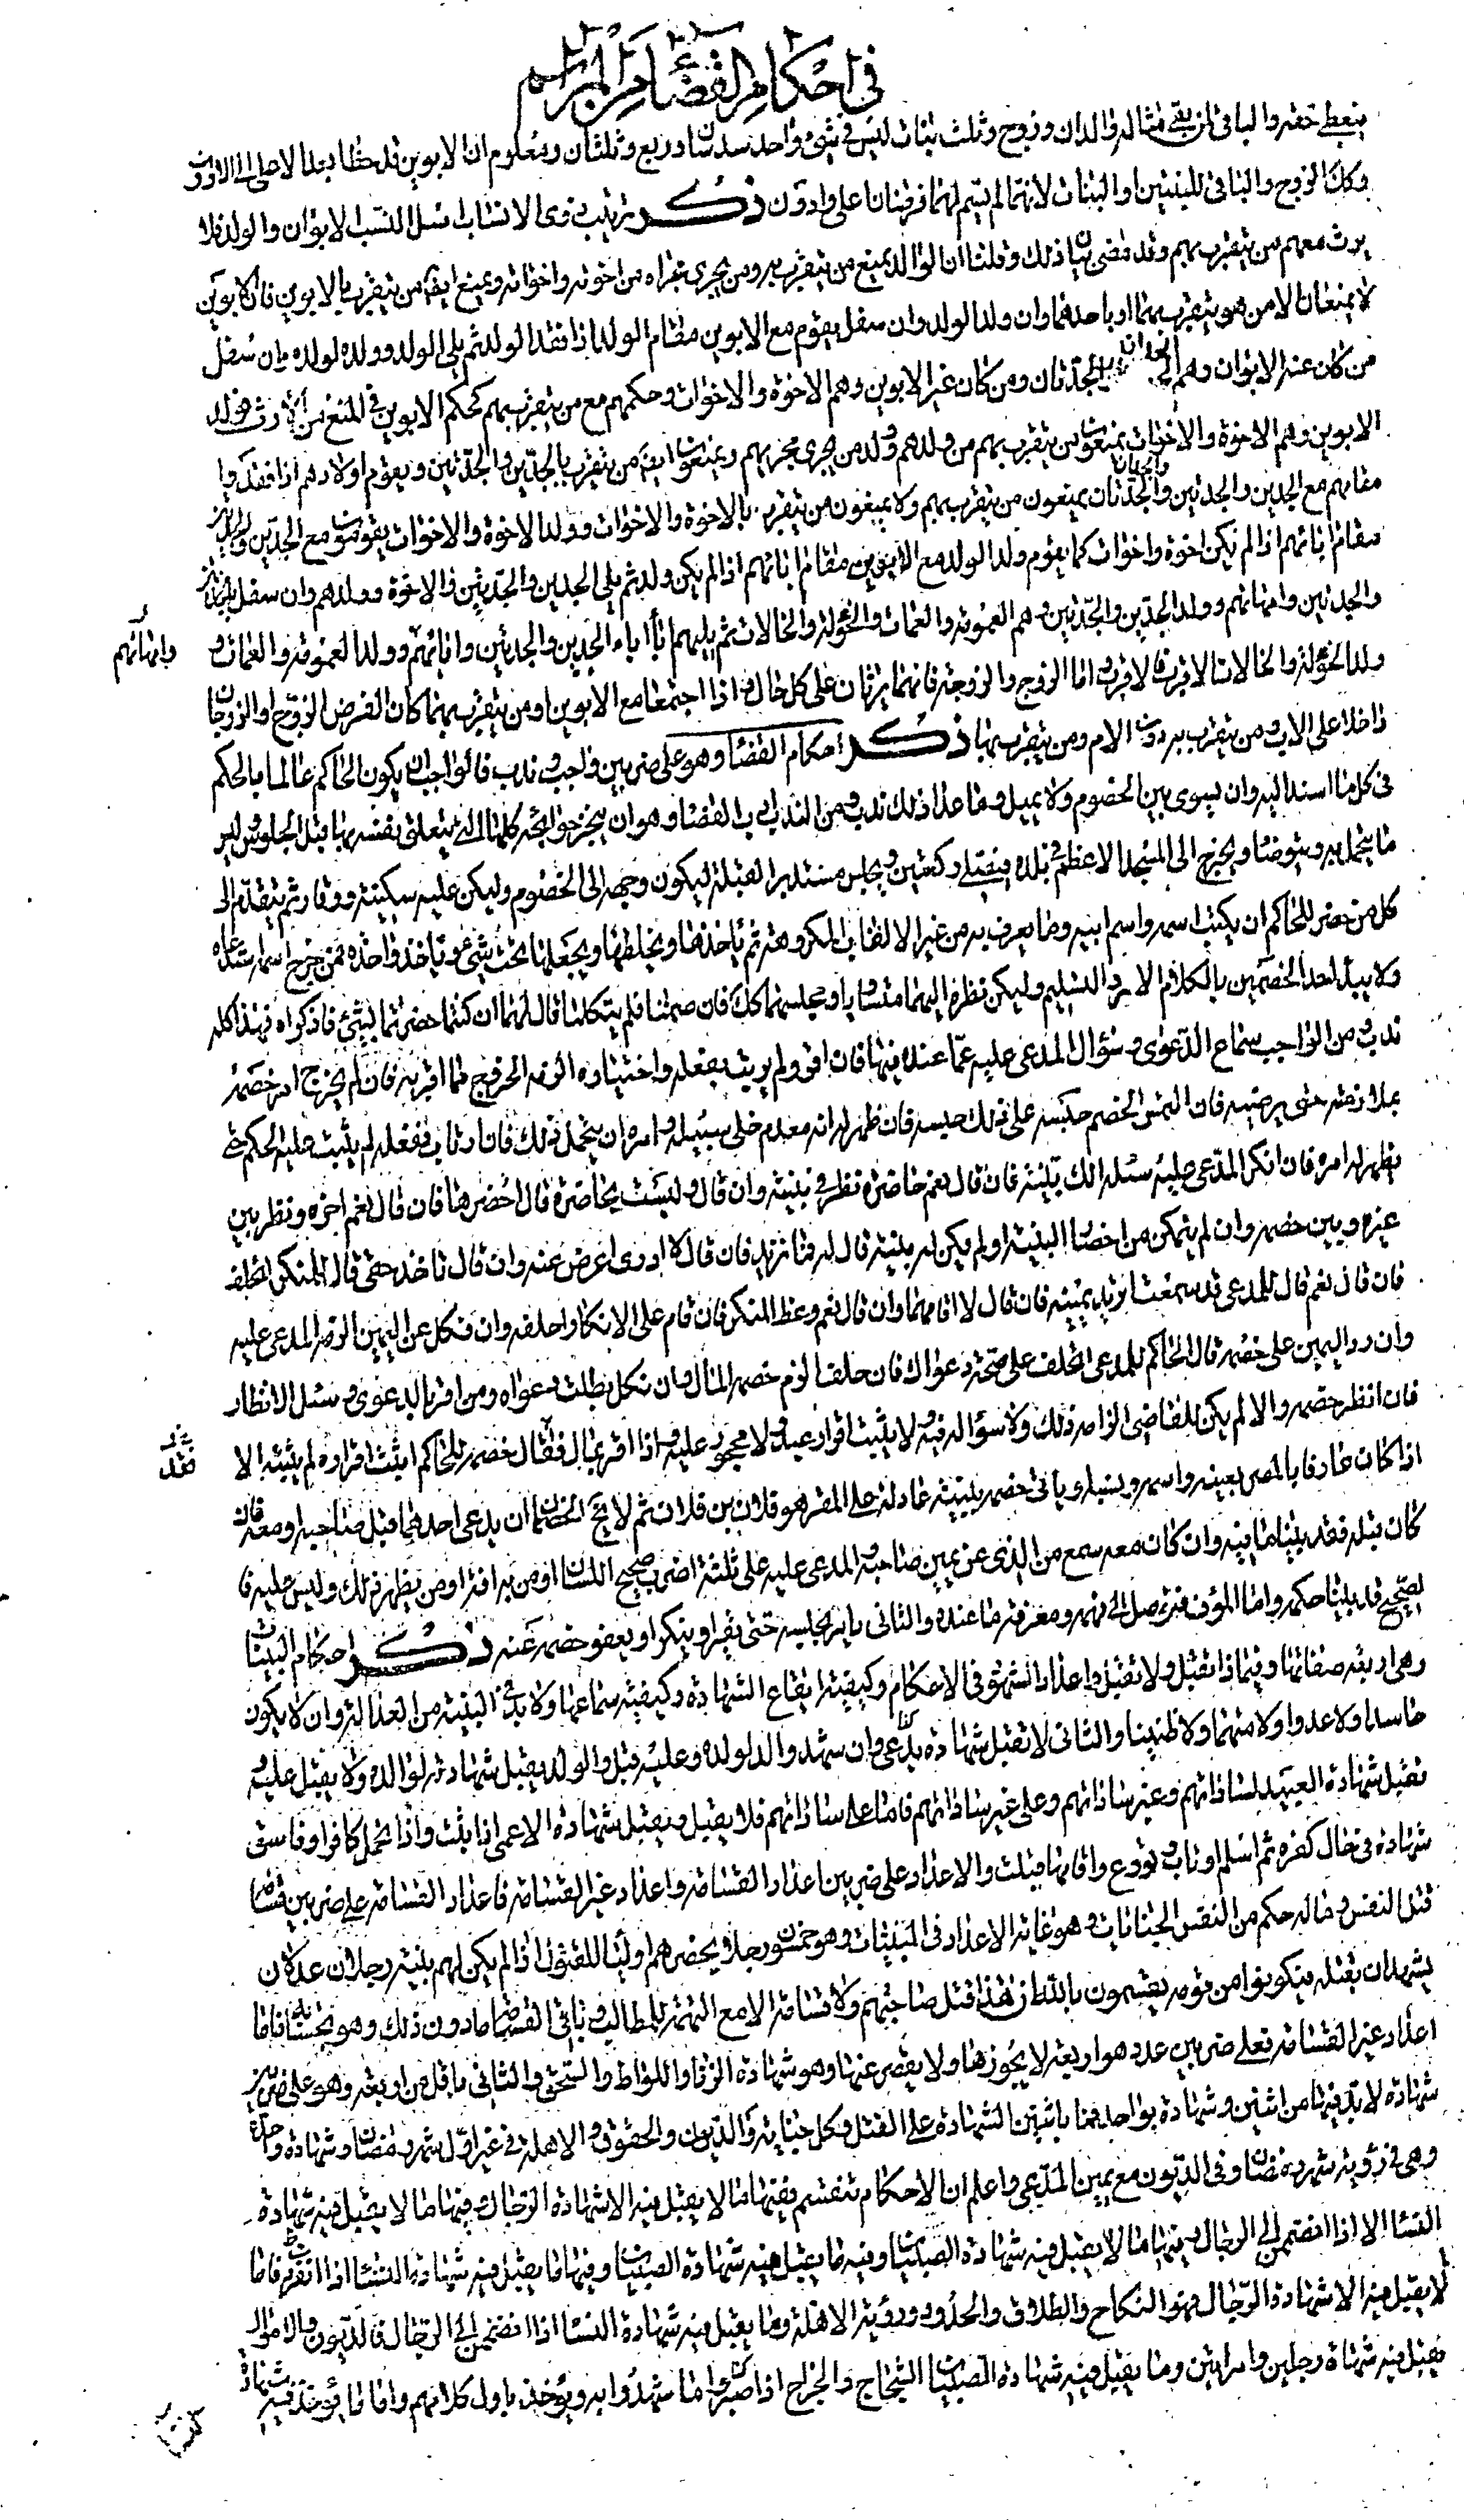 في احكام القضا من المراسم
يعطى حقه والباقي لمن بقي مثاله والدان وزوج وثلث بنات ليس في شيء واحد سدسان وربع وثلثان ومعلوم ان الابوين قد حطا بعد الاعلى الى الادون
وكك الزوج والباقي للبنتين او البنات لانهما لم يتم لهما فرضان اعلى وادون ذكر ترتيب ذوى الانساب اسل النسب الابوان والولد فلا
يرث معهم من يتقرب بهم وقد مضى بيان ذلك وقلنا ان الوالد يمنع من يتقرب به ومن يجرى مجراه من اخوته واخواته ويمنع ايضا من يتقرب بالابوين فان الابوين
لا يمنعان الا من هو يتقرب بهما او باحدهما وان ولد الولد وان سفل يقوم مع الابوين مقام الولد اذا فقد الولد ثم يلى الولد وولده لولده وان سفل
من كان عنه الابوان وهم الجدان والجدتان ومن كان غير الابوين وهم الاخوة والاخوات وحكمهم مع من يتقرب بهم كحكم الابوين في المنع من الارث فولد
الابوين وهم الاخوة والاخوات يمنعون من يتقرب بهم من ولدهم وولد من يجرى مجريهم ويمنعون ايضا من يتقرب بالجدين والجدتين ويقوم اولادهم اذا فقدوا
مقامهم مع الجدين والجدتين والجدان والجدتان يمنعون من يتقرب بهم ولا يمنعون من يتقرب بالاخوة والاخوات وولد الاخوة والاخوات يقومون مع الجدين والجدتين
مقام ابائهم اذا لم يكن اخوة واخوات كما يقوم ولد الولد مع الابوين مقام ابائهم اذا لم يكن ولد ثم يلى الجدين والجدتين والاخوة وولدهم وان سفل
والجدتين وامهاتهم وولد الجدين والجدتين وهم العمومة والعمات والخولة والخالات ثم يليهم اباء اباء الجدين والجدتين وابائهم وولد العمومة والعمات و
وامهاتهم
ولد الخولة والخالات الاقرب فالاقرب اما الزوج والزوجة فانهما يرثان على كل حال واذا اجتمعا مع الابوين او من يتقرب بهما كان الفرض الزوج او الزوجان
داخلا على الاب ومن يتقرب به دون الام ومن يتقرب بها ذكر احكام القضا وهو على ضربين واجب وندب فالواجب ان يكون الحاكم عالما بالحكم
في كل ما اسند اليه وان يسوى بين الخصوم ولا يميل وما عدا ذلك ندب ومن الندب اداب القضا وهو ان ينجز حوائجه كلها التى يتعلق نفسه بها قبل الجلوس ليس
ما يتجمل به ويتوضا ويخرج الى المسجد الاعظم في بلده فيصلى ركعتين ويجلس مستدبر القبلة ليكون وجهه الى الخصوم وليكن عليه سكينة ووقار ثم يتقدم الى
كل من حضر للتحاكم ان يكتب اسمه واسم ابيه وما يعرف به من غير الالقاب المكروهة ثم ياخذها ويخلطها ويجعلها تحت شيء وياخذ واحدة فمن خرج اسمه استدعاه
ولا يبدأ احد الخصمين بالكلام الا برد التسليم وليكن نظره اليهما متساويا ومجلسهما كك فان صمتا فلم يتكلما قال لهما ان كنتما حضرتما لشيء فاذكراه فهذا كله
ندب ومن الواجب سماع الدعوى وسؤال المدعى عليه عما عنده فيها فان اقر ولم يرتب بفعله واختياره الزمه الخروج مما اقر به فان لم يخرج امر خصمه
بملازمته حتى يرضيه فان التمس الخصم حبسه على ذلك حبسه فان ظهر له انه معدم خلى سبيله وامره ان يتحمل ذلك فان ارتاب ففعله لم يثبت عليه الحكم حتى
يظهر له امره فان انكر المدعى عليه سئله الك بينة فان قال نعم حاضرة نظر في بينته وان قال وليست بحاضرة قال احضرها فان قال نعم اخره ونظر بين
غيره وبين خصمه وان لم يتمكن من احضار البينة او لم يكن له بينة قال له فما تريد فان قال لا ادرى اعرض عنه وان قال تاخذ حقي قال للمنكر اتحلف
فان قال نعم قال للمدعى قد سمعت اتريد يمينه فان قال لا اقامهما وان قال نعم وعظ المنكر فان قام على الانكار احلفه وان نكل عن اليمين الزمه المدعى عليه
وان رد اليمين على خصمه قال الحاكم للمدعى اتحلف على صحة دعواك فان حلف الزم خصمه المال وان نكل بطلت دعواه ومن اقر بالدعوى وسئل الانظار
فان انظر خصمه والا لم يكن للقاضى الزامه ذلك ولا سؤاله فيه ولا يثبت اقرار عبد ولا محجور عليه واذا اقر بمال فقال خصمه للحاكم اثبت اقراره لم يثبته الا
اذا كان عارفا بالمقر بعينه واسمه ونسبه او ياتى خصمه ببينة عادلة على المقر هو فلان بن فلان ثم لا يخ الخصمان اما ان يدعى احدهما قبل صاحبه او معه فان
كان قبله فقد بينا ما فيه وان كان معه سمع من الذى عن يمين صاحبه والمدعى عليه على ثلثة اضرب صحيح اللسان او من به افة او من يظهر ذلك وليس عليه فا
لصحيح قد بينا حكمه واما المؤف فتوصل الى فهمه ومعرفة ما عنده والثانى يامر بحبسه حتى يقر او ينكر او يعفو خصمه عنه ذكر احكام البينات
وهى اربعة صفاتها وفيما ذا تقبل ولا تقبل واعداد الشهود في الاحكام وكيفية ايقاع الشهادة وكيفية سماعها ولا بد في البينة من العدالة وان لا يكون
حاسدا ولا عدوا ولا متهما ولا ظنينا والثانى لا تقبل شهادة بدعى وان شهد والد لولده وعليه قبل والولد يقبل شهادته لوالده ولا يقبل عليه و
تقبل شهادة العبيد لساداتهم وغير ساداتهم وعلى غير ساداتهم فاما على ساداتهم فلا يقبل ويقبل شهادة الاعمى اذا اثبت واذا تحمل كافر او فاسق
شهادة في حال كفره ثم اسلم او تاب وتورع واقامها قبلت والاعداد على ضربين اعداد القسامة واعداد غير القسامة فاعداد القسامة على ضربين قسامة
قتل النفس وما له حكم من النفس الجنايات وهو غاية الاعداد في البينات وهو خمسون رجلا يحضرهم اولياء المقتول اذا لم يكن لهم بينة رجلان عدلان
يشهدان بقتله فيكونوا من قومه يقسمون بالله ان هذا قتل صاحبهم ولا قسامة الا مع التهمة للمطالب وباقى القسامة ما دون ذلك وهو بحسابه فاما
اعداد غير القسامة فعلى ضربين عدد هو اربعة لا يجوزها ولا يقصر عنها وهو شهادة الزنا واللواط والسحق والثانى ما قل من اربعة وهو على ضربين
شهادة لا بد فيها من اثنين وشهادة بواحد فما باثنين الشهادة على القتل وكل جناية والديون والحقوق والاهلة في غير اول شهر رمضان وشهادة واحد
وهى في رؤية شهر رمضان وفى الديون مع يمين المدعى واعلم ان الاحكام تنقسم ففيها ما لا يقبل فيه الا شهادة الرجال وفيها ما لا يقبل فيه شهادة
النساء الا اذا انضم الى الرجال وفيها ما لا يقبل فيه شهادة الصبيان وفيه ما يقبل فيه شهادة الصبيان وفيها ما يقبل فيه شهادة النساء اذا انفردن فاما
لا يقبل فيه الا شهادة الرجال فهو النكاح والطلاق والحدود ورؤية الاهلة وما يقبل فيه شهادة النساء اذا انضممن الى الرجال فالديون والاموال
فيقبل فيه شهادة رجلين وامراتين وما يقبل فيه شهادة الصبيان الشجاج والجراح اذا اصبروا ما شهدوا به ويؤخذ باول كلامهم واما ما يؤخذ فيه شهادة